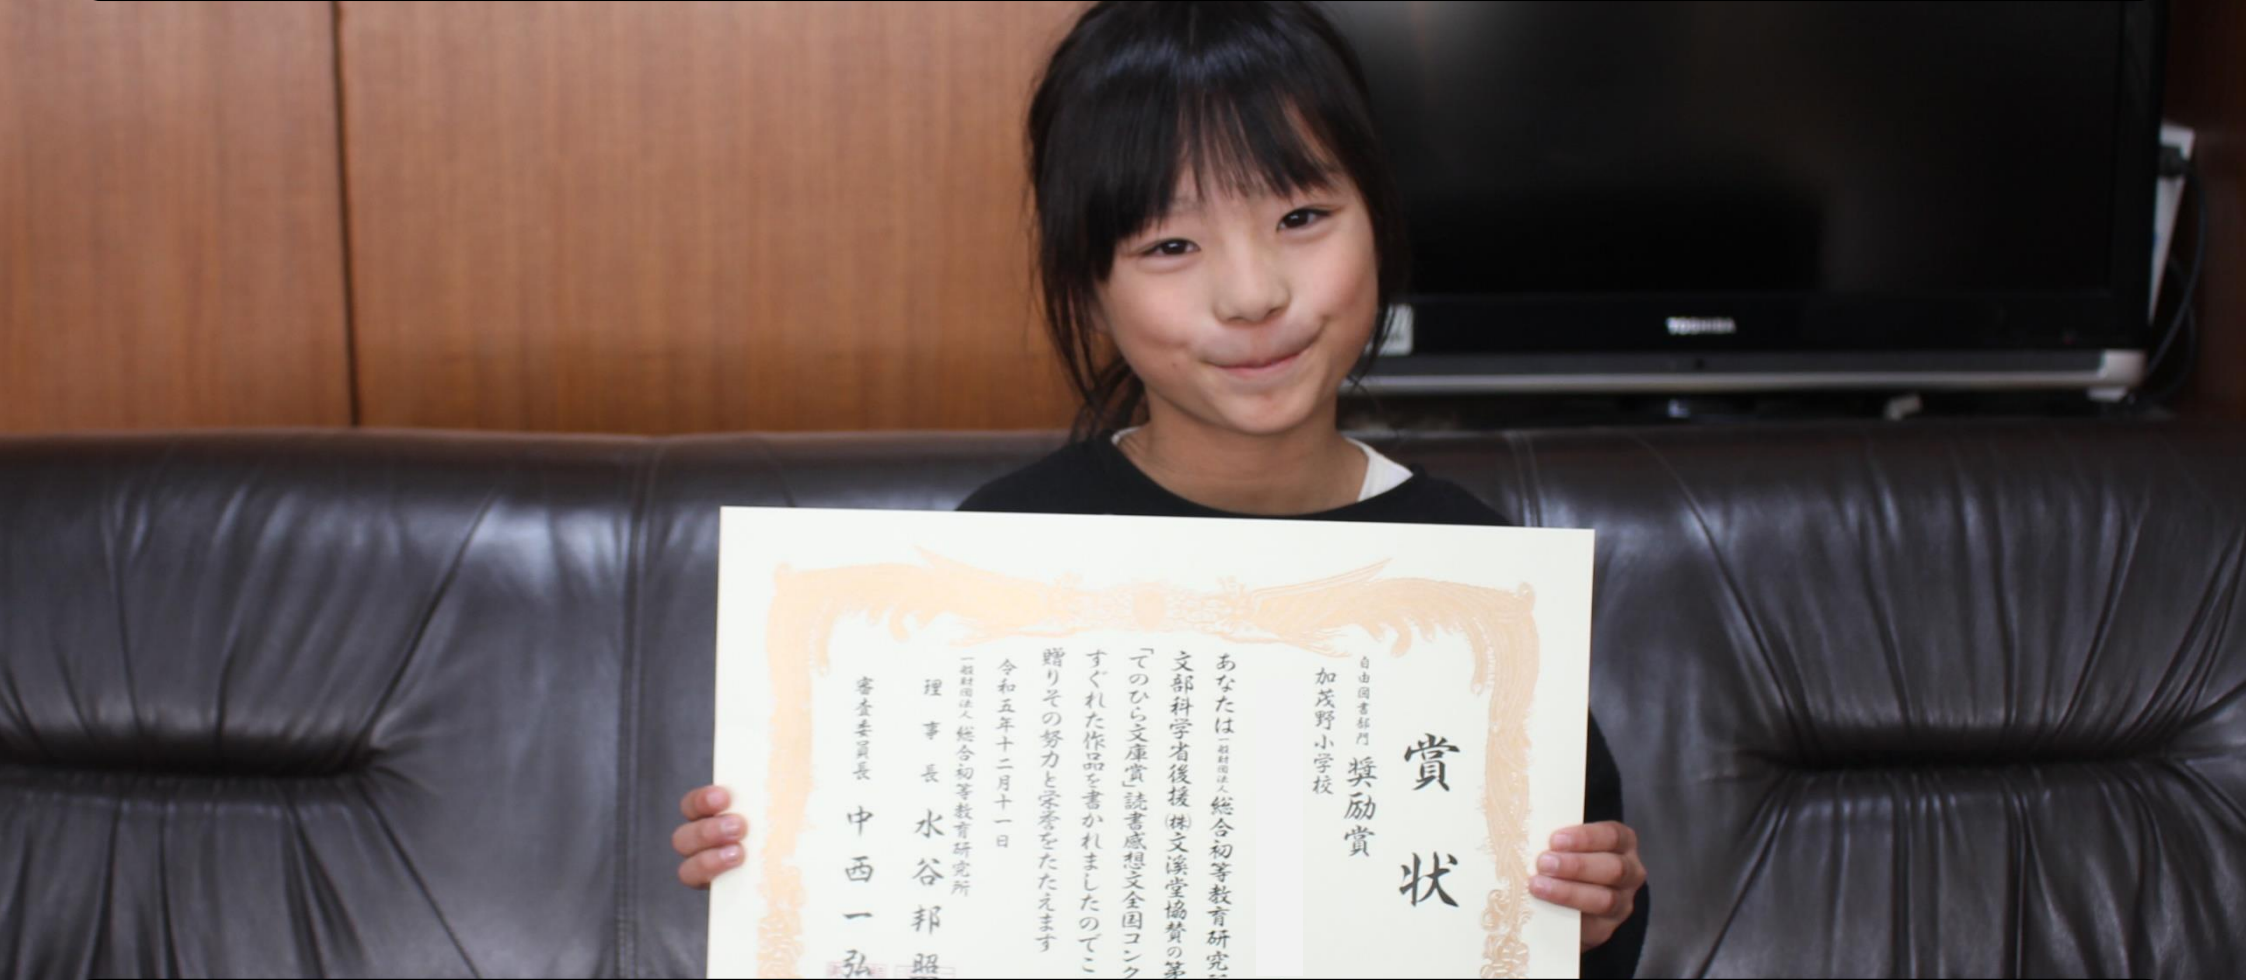 賞状
自由図書部門 奨励賞
加茂野小学校
あなたは一般財団法人総合初等教育研究
文部科学省後援㈱文溪堂協賛の第
「てのひら文庫賞」読書感想文全国コンク
すぐれた作品を書かれましたのでこ
贈りその努力と栄誉をたたえます
令和五年十二月十一日
一般財団法人 総合初等教育研究所
理事長 水谷邦照
審査委員長 中西一弘
TOSHIBA